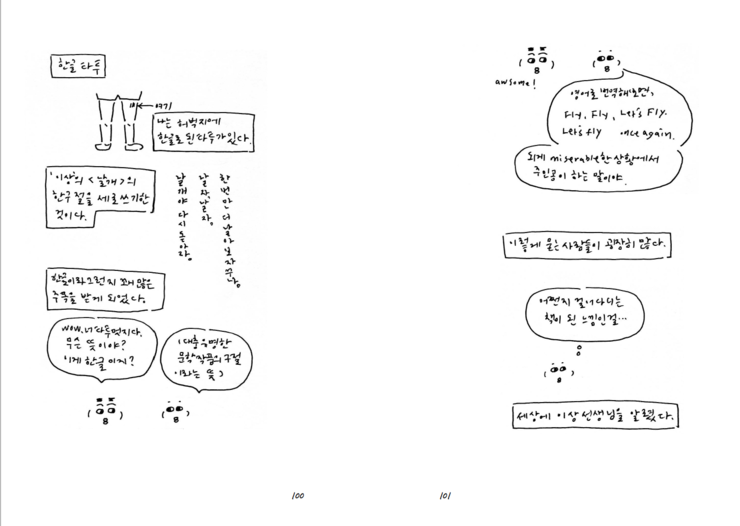 한글 타투
여기
나는 허벅지에
한글로 된 타투가 있다.
'이상'의 <날개>의
한 구절을 세로쓰기한
것이다.
한번만 더 날아보자꾸나.
날자, 날자.
날개야 다시 돋아라.
한글이라 그런지 꽤 많은
주목을 받게 되었다.
wow. 너 타투 멋지다.
무슨 뜻이야?
이게 한글이지?
(대충 유명한
문학작품의 구절
이라는 뜻)
100
awsome!
영어로 번역해보면,
Fly, Fly, Let's Fly.
Let's fly once again.
되게 miserable한 상황에서
주인공이 하는 말이야.
이렇게 묻는 사람들이 굉장히 많다.
어쩐지 걸어다니는
책이 된 느낌인걸...
세상에 이상 선생님을 알렸다.
101